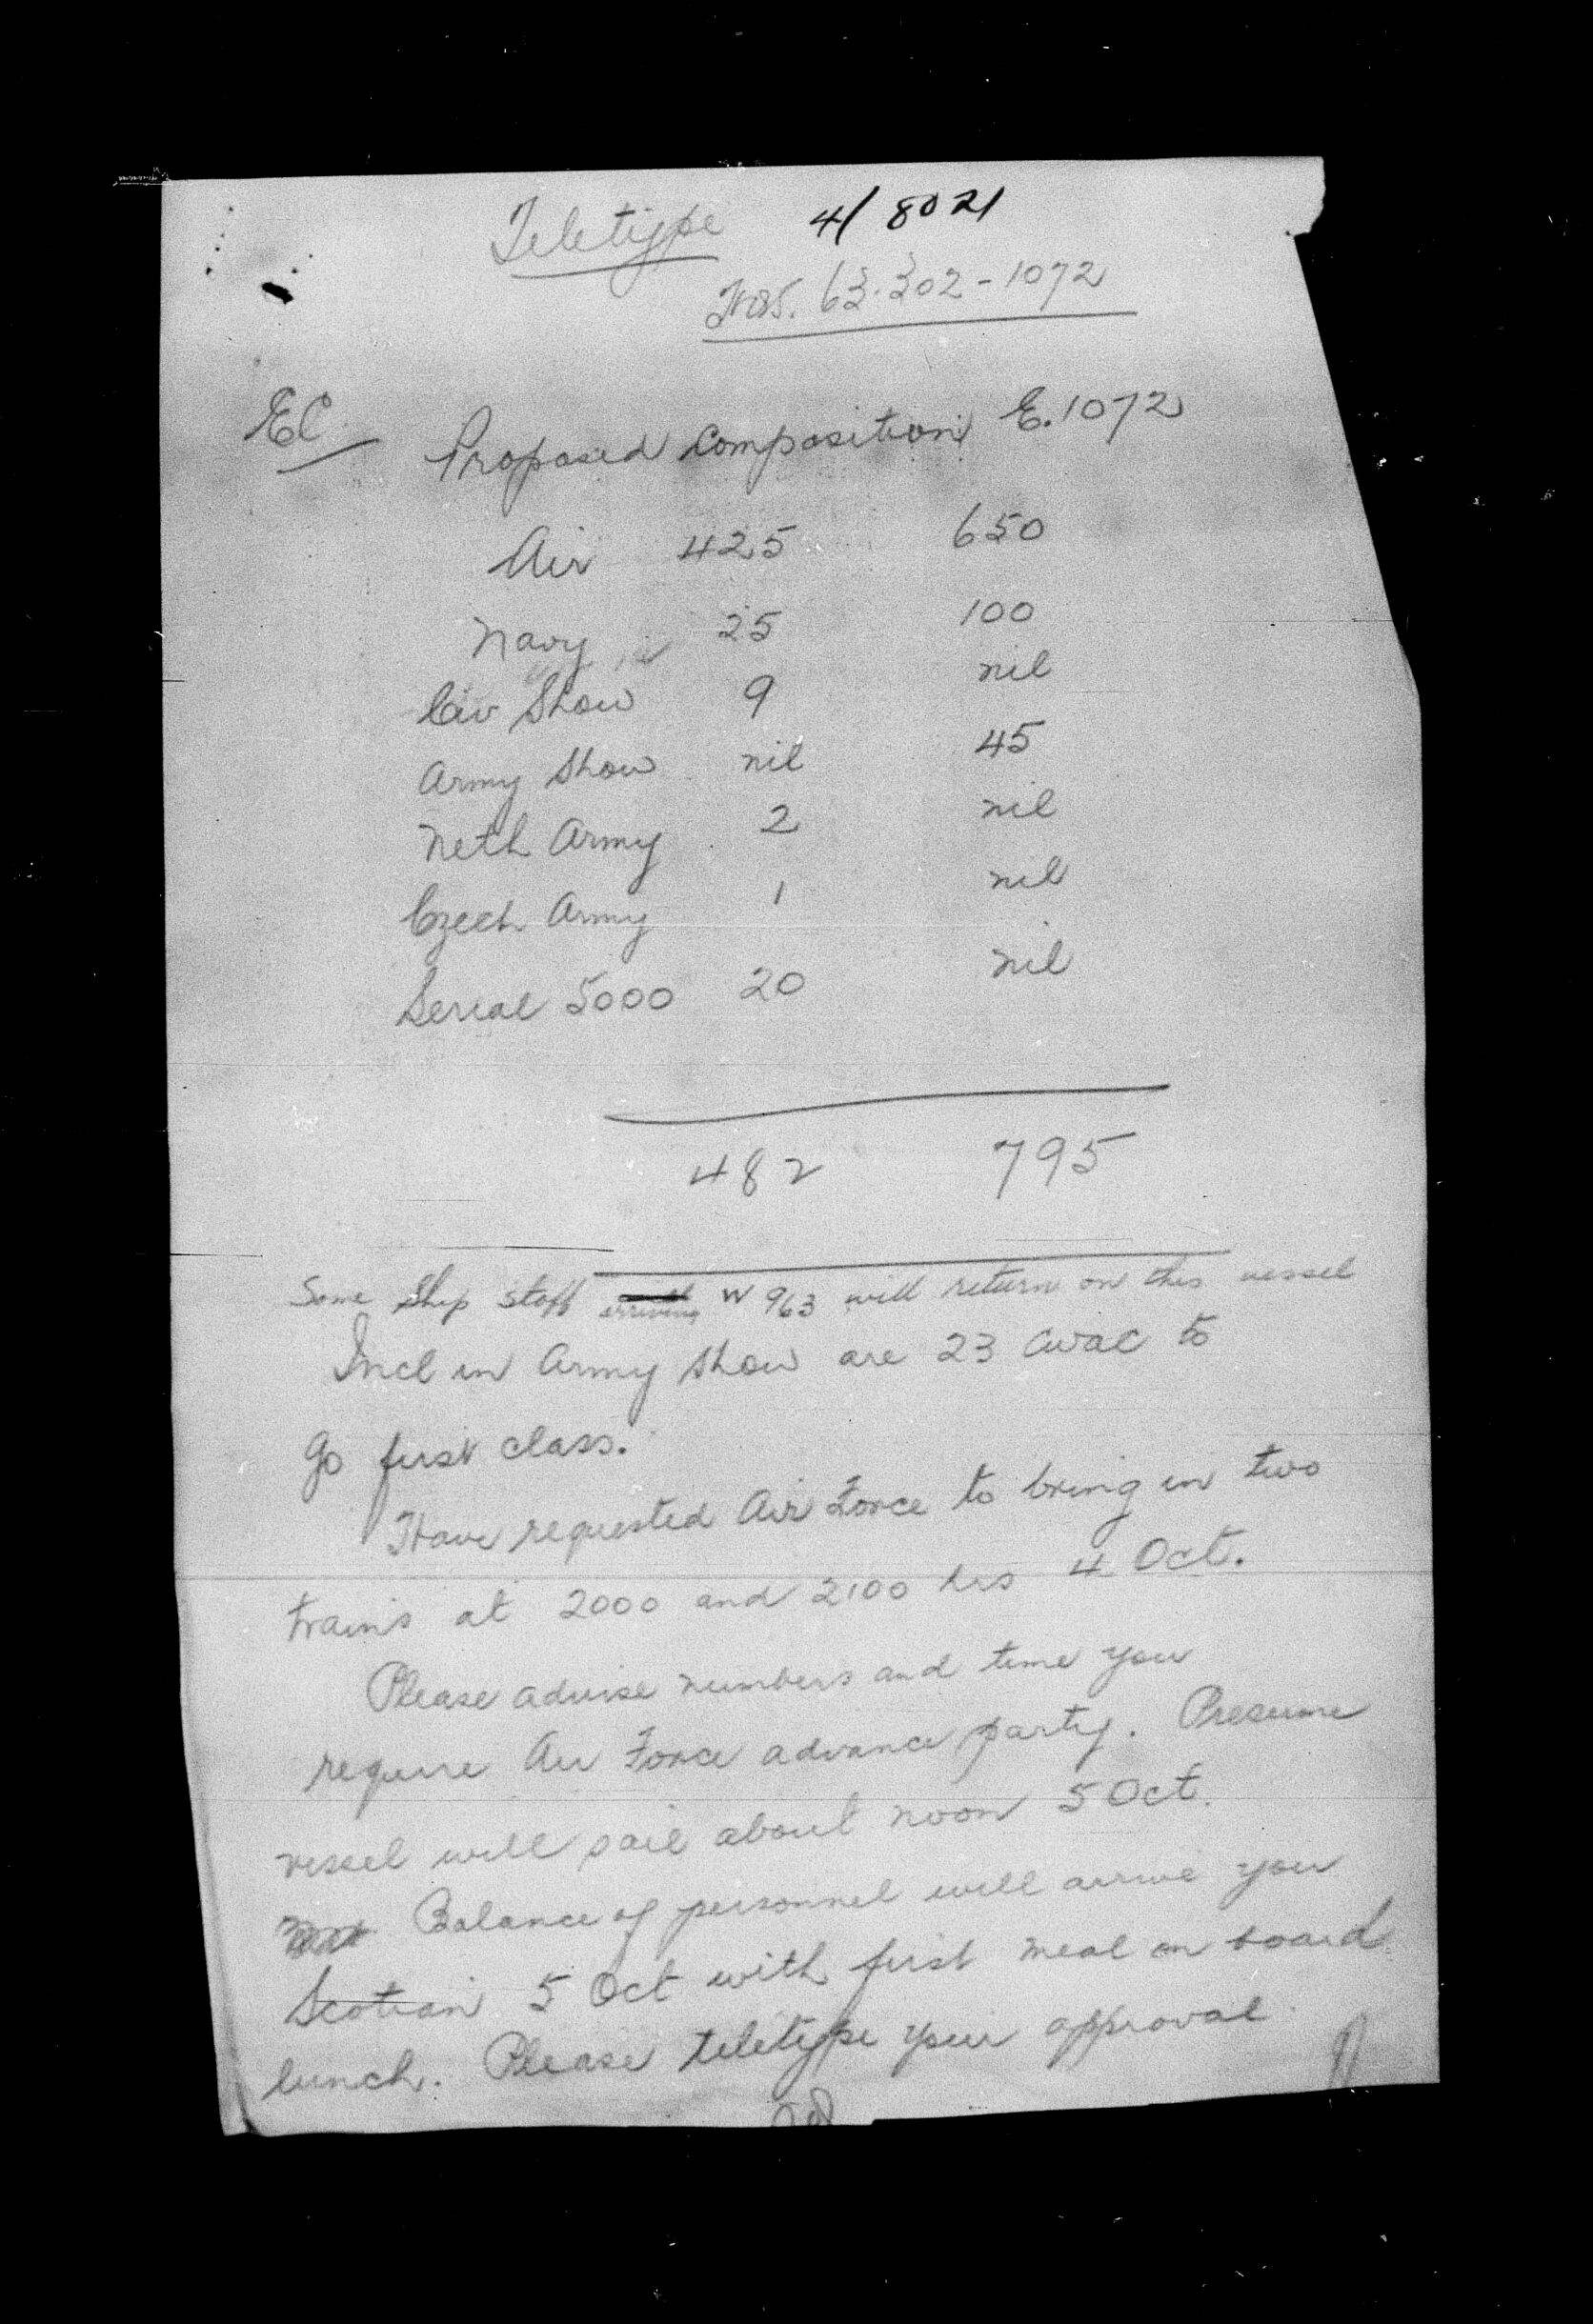 Teletype 4/8021
HQS. 63-302-1072
EC Proposed Composition E.1072
Air 425 650
Navy 25 100
Civ Show 9 nil
Army Show nil 45
Neth Army 2 nil
Czech Army 1 nil
Serial 5000 20 nil
482 795
Some Ship staff arriving W 963 will return on this vessel
Incl in Army Show are 23 CWAC to
go first class.
Have requested Air Force to bring in two
trains at 2000 and 2100 hrs 4 Oct.
Please advise numbers and time you
require Air Force advance party. Presume
vessel will sail about noon 5 Oct.
Balance of personnel will arrive you
Scotian 5 Oct with first meal on board
lunch. Please teletype your approval